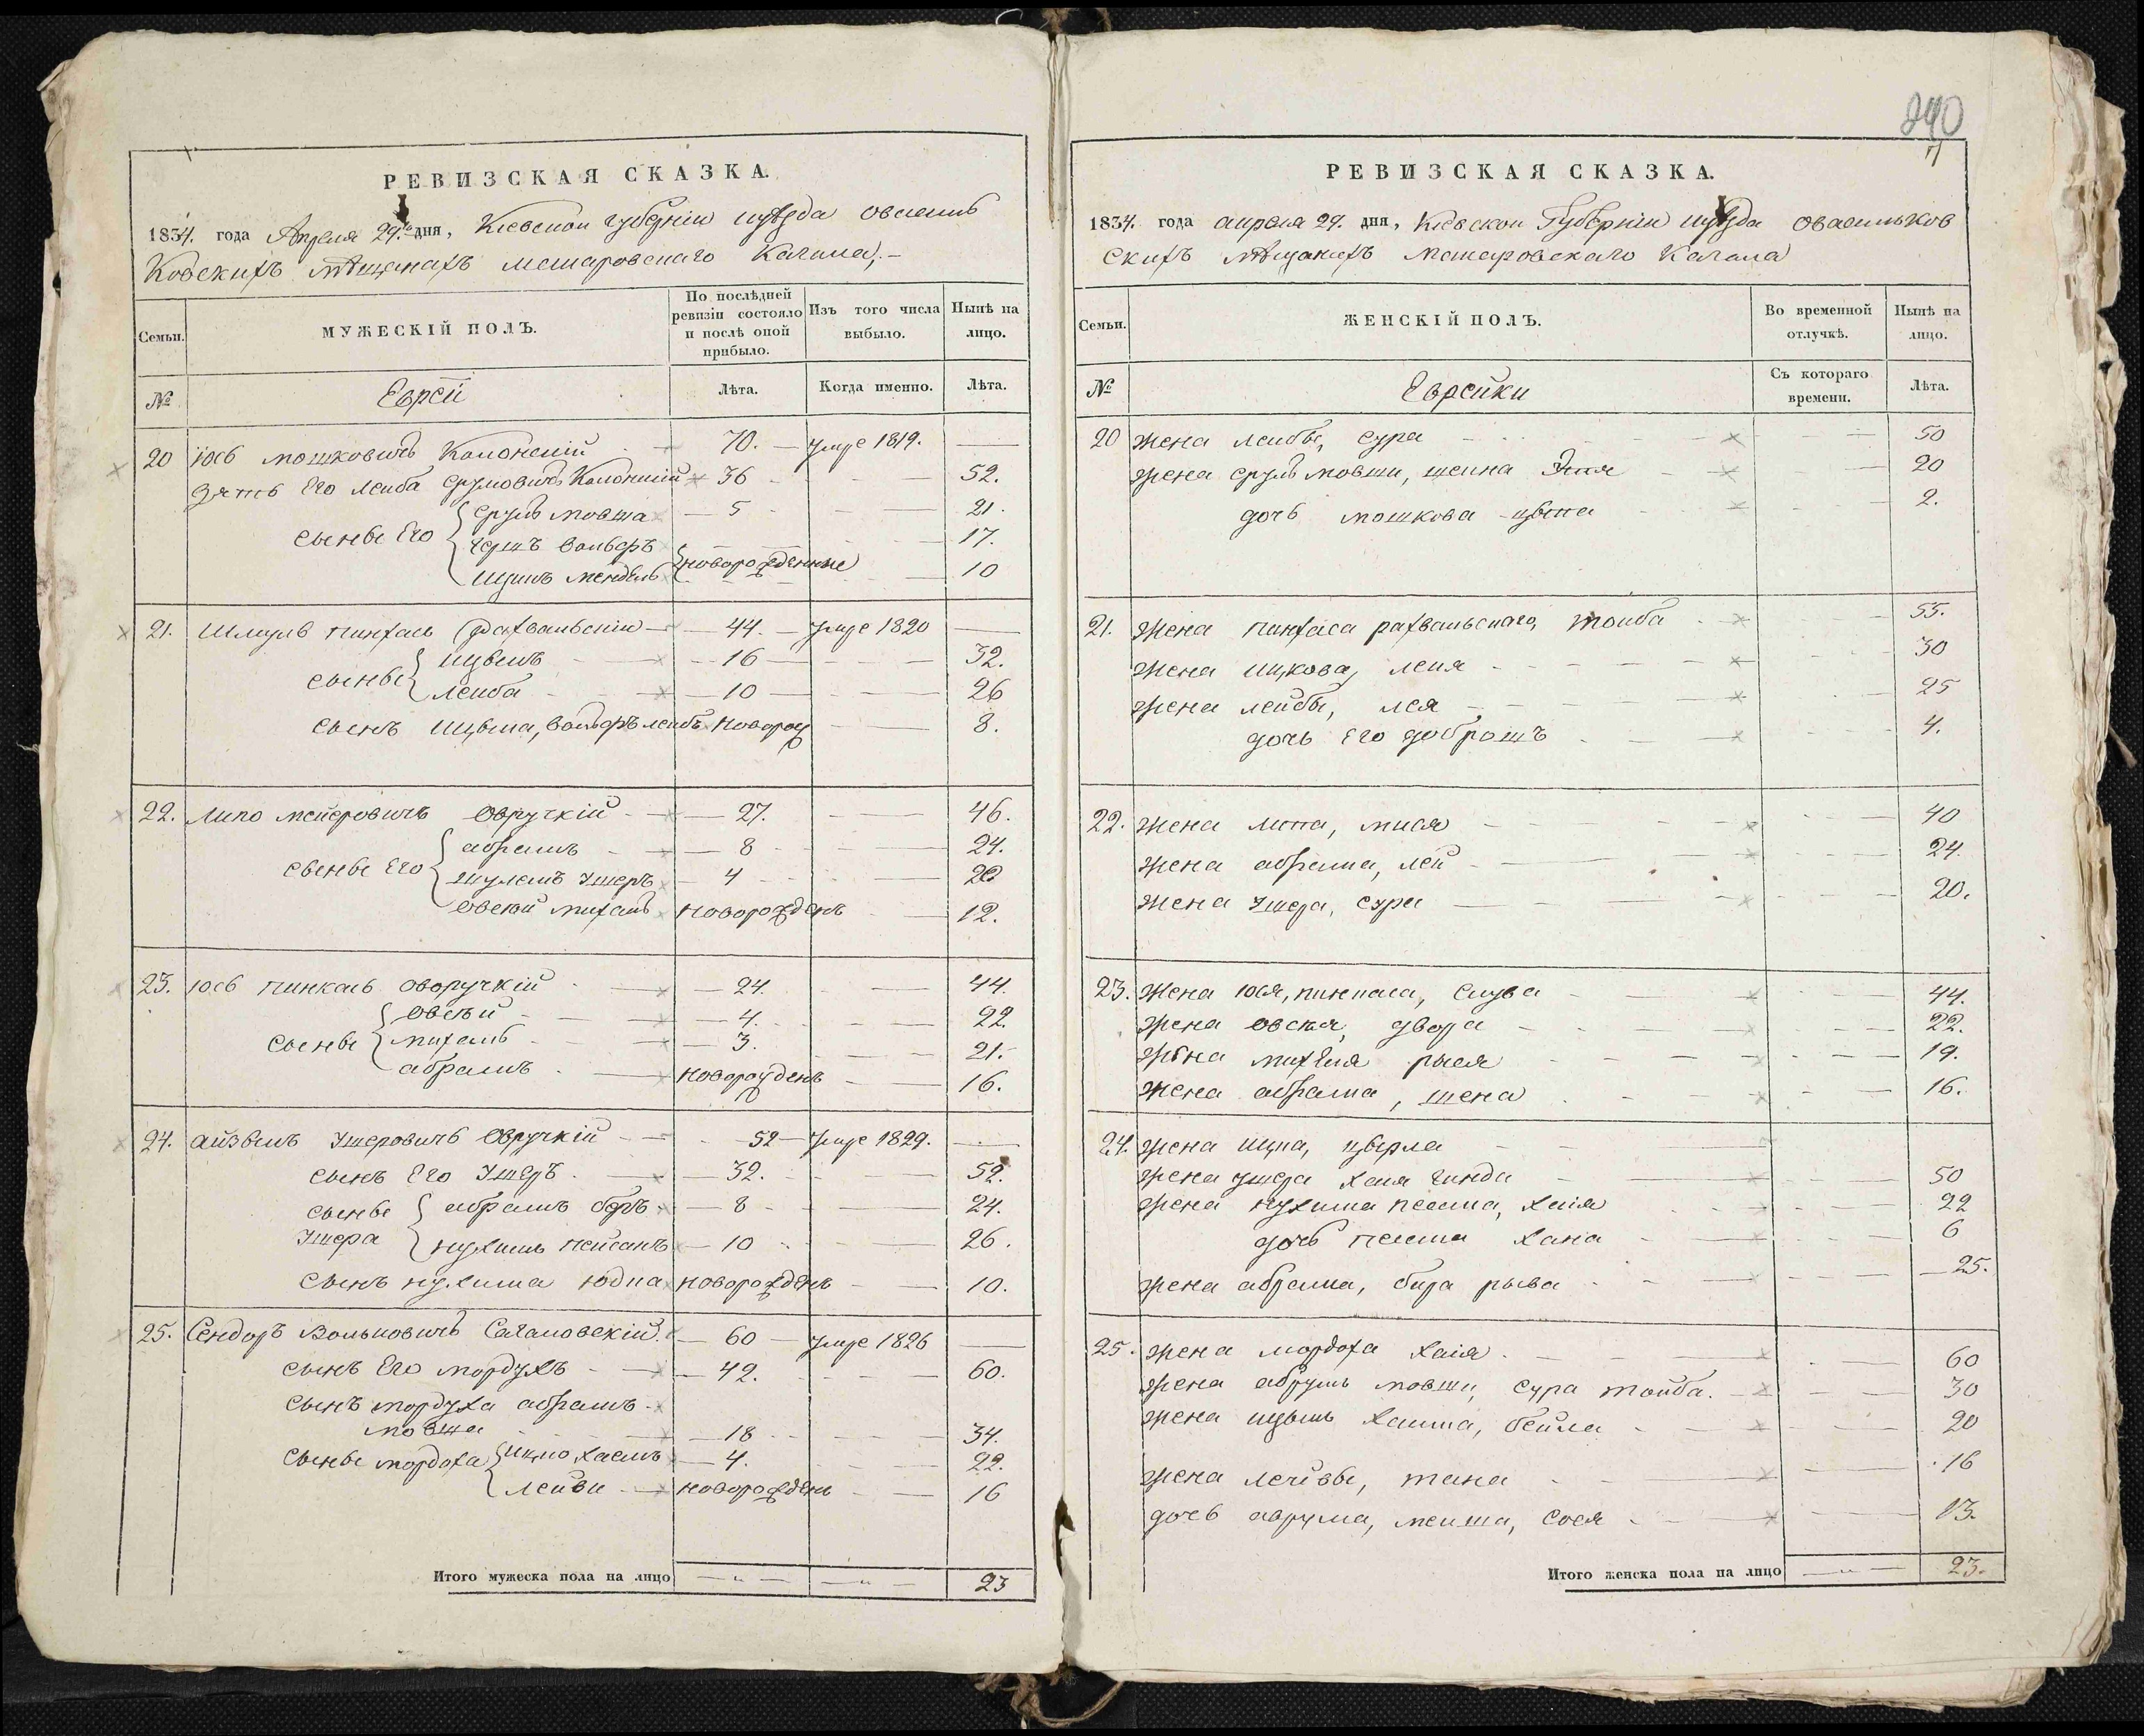 РЕВИЗСКАЯ СКАЗКА.
1834. года Апреля 29. дня, Кіевской губерніи уезда овасиль
Ковскихъ мѣщанахъ Кагала,
Семьи. МУЖЕСКІЙ ПОЛЪ. По послѣдней ревизіи состояло и послѣ оной прибыло. Изъ того числа выбыло. Нынѣ на лицо.
№ Еврей Лѣта. Когда именно. Лѣта.
20 Іось мошковичъ 70. умре 1819.
зять Его Лейба Сруловичъ 36 52.
Сынъве Его Сруль мовша 5 21.
Гершъ вольфъ 17.
Ицикъ мендель новорожденные 10
21. Шмуль пинхась Рахвальскій 44. умре 1820
сынъве 16 32.
Лейба 10 26
сынъ вольфъ лейбъ новорожд 8.
22. Липо мейеровичъ Овручкій 27. 46.
сынъве Его абрамъ 8 24.
шулемъ Ушеръ 4 20
Овсей михель новорожденъ 12.
23. Юсь пинкась Оворучкій 24. 44.
Овсей 4. 22.
Сынъве михель 3. 21.
абрамъ новорожденъ 16.
24. айзыкъ Ушеровичъ Овручкій 52 умре 1829.
сынъ Его Ушеръ 32. 52.
сынъве абрамъ беръ 8 24.
Ушера нухимъ пейсакъ 10 26.
сынъ нухима Юдка новорожденъ 10.
25. Сендоръ Вольковичъ 60 умре 1826
сынъ Его мордухъ 42. 60.
сынъ мордуха абрамъ
мовша 18 34.
Сынъве мордоха Ицко хаемъ 4. 22.
Лейзи новорожденъ 16
Итого мужеска пола на лицо 23
240
РЕВИЗСКАЯ СКАЗКА.
1834. года апреля 29. дня, Кіевской Губерніи уезда Овасильков
скихъ мѣщанехъ Кагала
Семьи. ЖЕНСКІЙ ПОЛЪ. Во временной отлучкѣ. Нынѣ на лицо.
№ Еврейки Съ котораго времени. Лѣта.
20 Жена лейбы, сура 50
жена сруль мовши, шеина Этя 20
дочь мошкова 2.
21. Жена пинхаса рахвальскаго, тойба 55.
Жена ицкова, лея 30
жена лейбы, лея 25
дочь Его доброшъ 4.
22. Жена липа, мися 40
жена абрама, лей 24.
Жена ушера, сура 20.
23. Жена юся, пинкаса, 44.
жена овсея, двора 22.
жена михеля рыся 19.
Жена абрама, шена 16.
24. жена ицка, цырла
жена ушера хая гинда 50
жена нухима хаія 22
дочь хана 6
жена абрама, рыва 25.
25. жена мордоха хаія 60
жена абрумъ мовши, сура тойба. 30
жена ицыкъ хаима, бейла 20
жена лейзы, тана 16
дочь аврума, сося 13.
Итого женска пола на лицо 23.